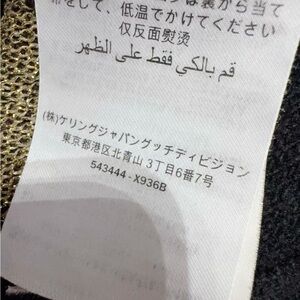 は裏から当て
布をして、低温でかけてください
仅反面熨烫
قم بالكي فقط على الظهر
(株)ケリングジャパングッチディビジョン
東京都港区北青山 3丁目6番7号
543444 - X936B